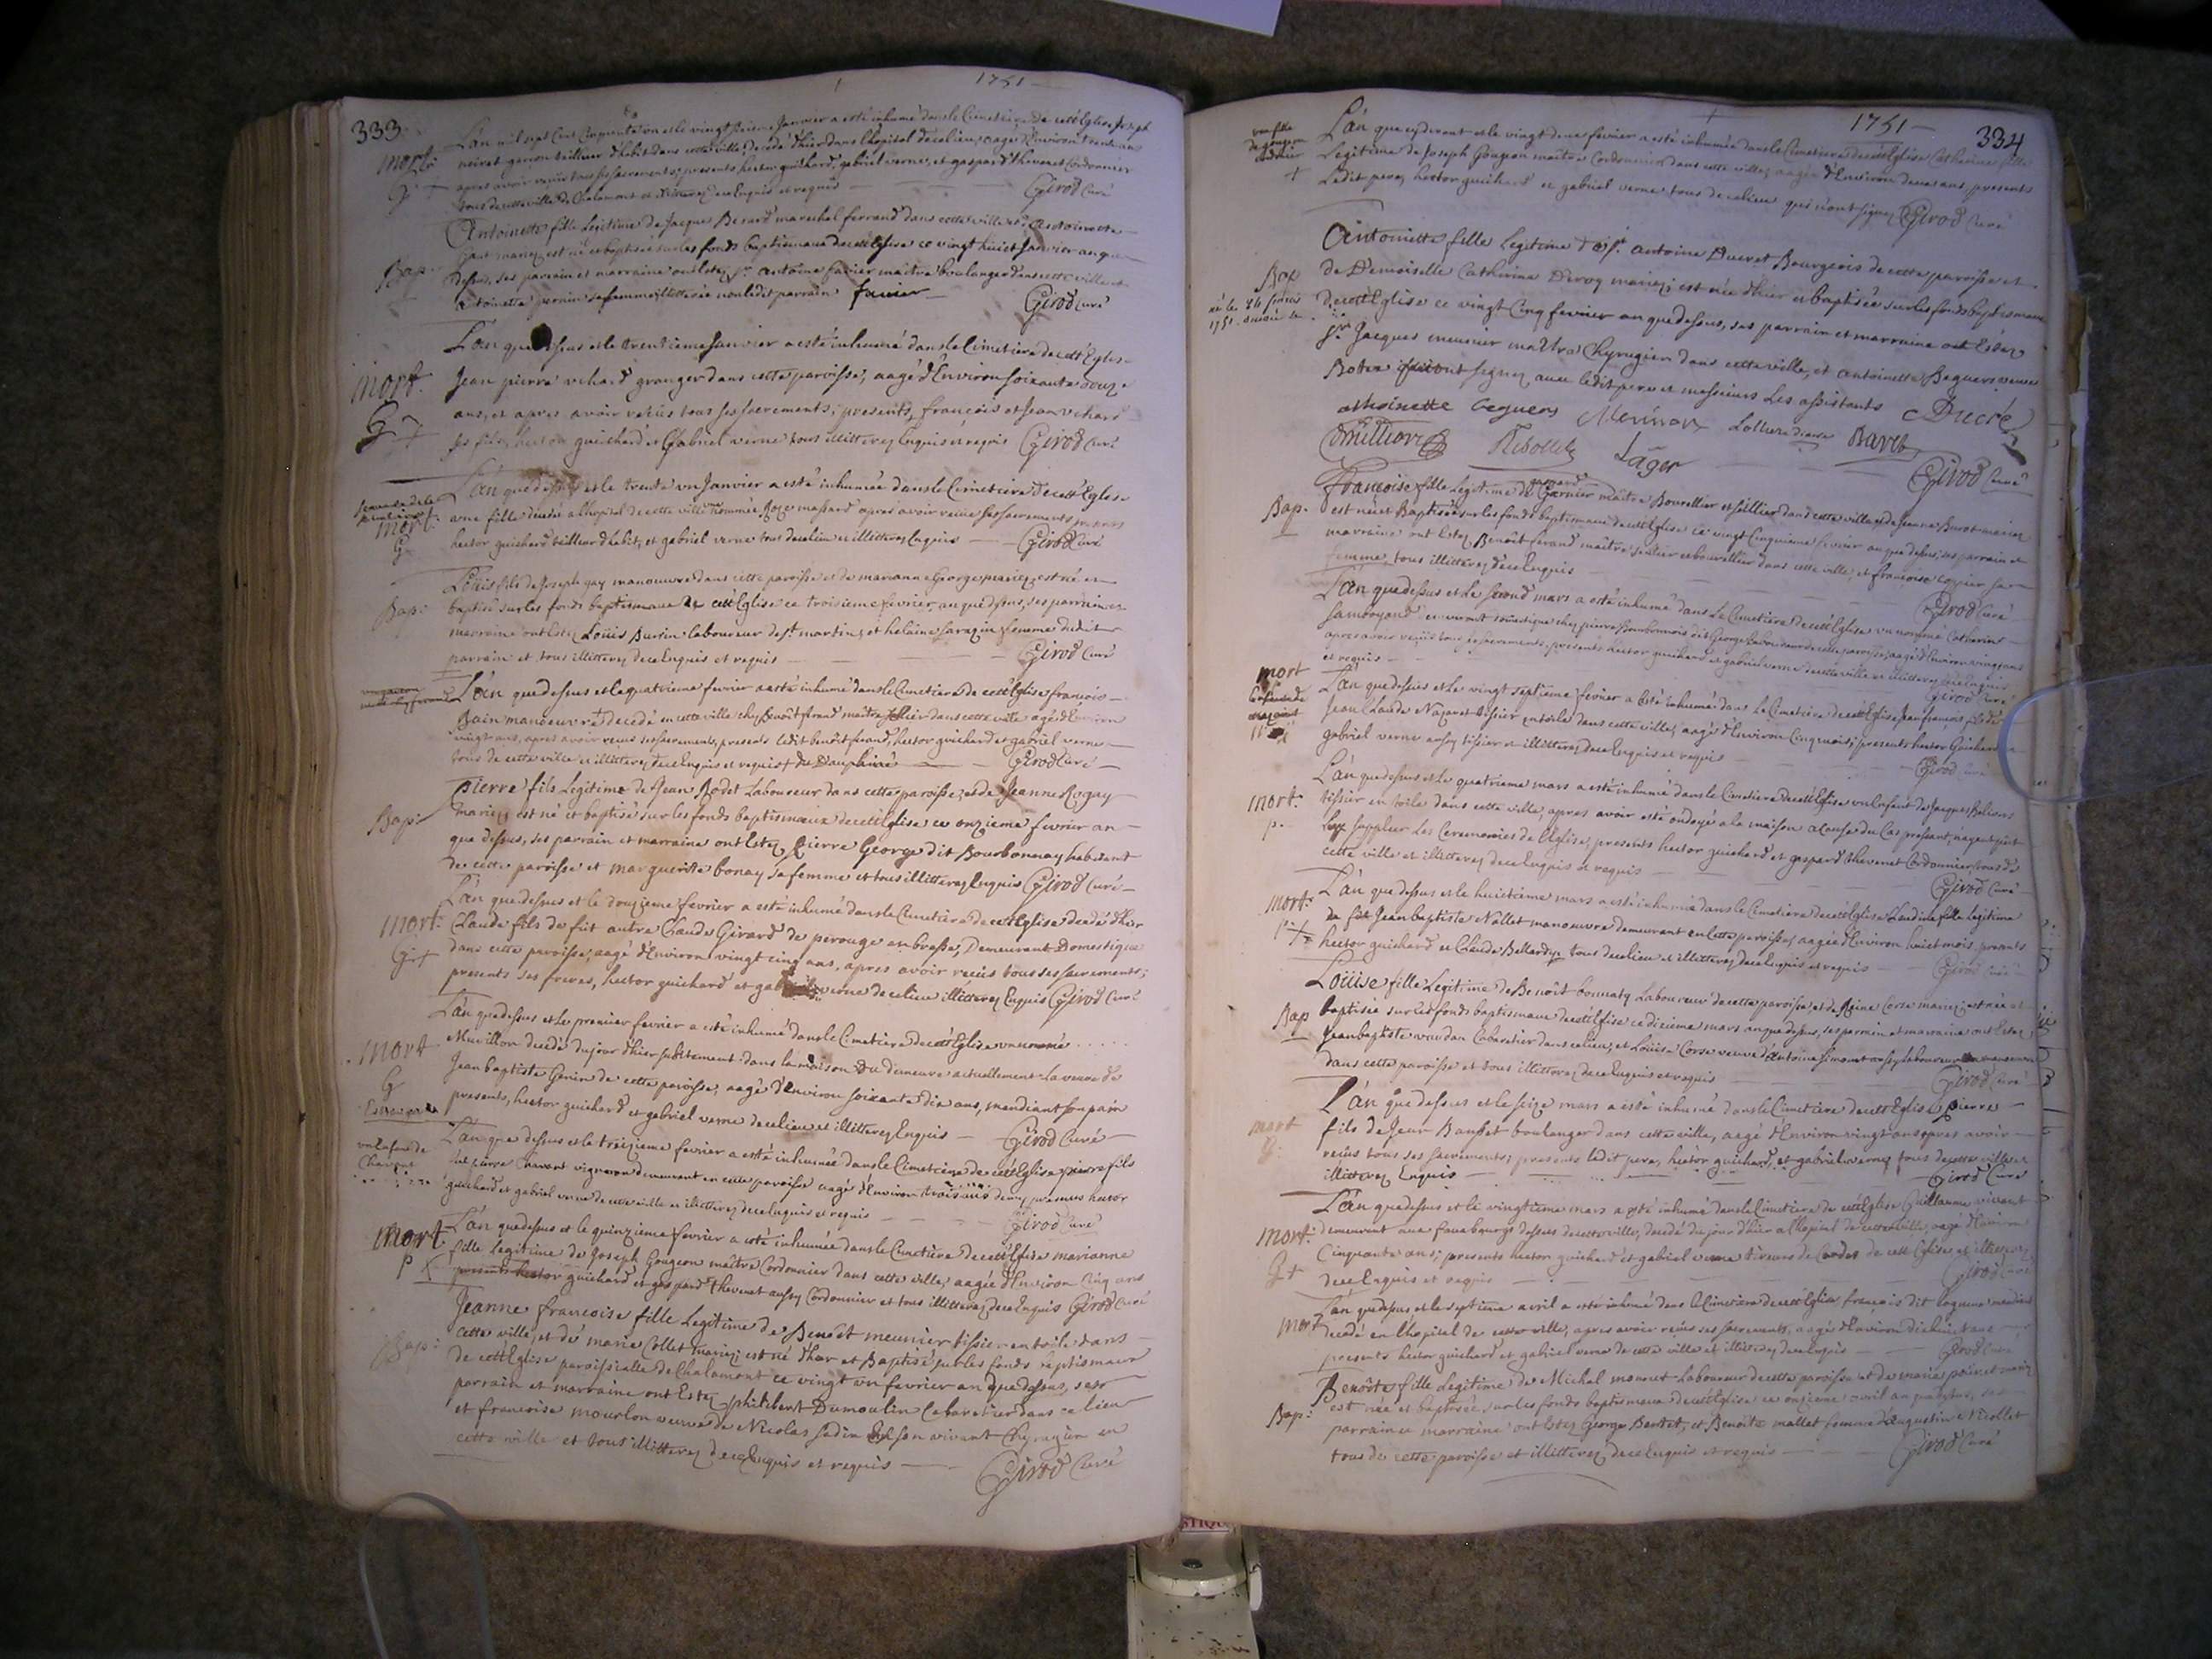 1751
333
L'an mil sept Cent Cinquante un et le vingt sixieme Janvier a esté inhumé dans le Cimetiere de cette Eglise Joseph
mort.
garçon tailleur d'habit dans cette ville, decedé d'hier dans l'hopital de ce lieu, aagé d'Environ trente ans
apres avoir reçus tous ses sacrements, presents hector guichard, gabriel verne, et gaspard thevenet Cordonnier
tous de cette ville de Chalamont et illitterez de ce Enquis et requis Girod Curé
Antoinette fille Legitime de Jacques Berard marechal ferrand dans cette ville et d'Antoinette
mariez est né et baptisée sur les fonds baptismaux de cette Eglise ce vingt huict Janvier an que
Bap.
dessus, ses parrain et marraine ont Estez Sr. Antoine favier maitre boulanger dans cette ville et
antoinette sa femme illitterée non ledit parrain favier Girod Curé
L'an que dessus et le trentieme Janvier a esté inhumé dans le Cimetiere de cett' Eglise
mort.
Jean pierre vchard granger dans cette paroisse, aagé d'Environ soixante douze
ans, et apres avoir reçus tous ses sacrements; presents, françois et Jean vchard
G +
ses fils, hector guichard et Gabriel verne tous illitterez Enquis et requis Girod Curé
L'an que dessus et le trente un Janvier a esté inhumée dans le Cimetiere de cett' Eglise
mort.
une fille decedée a l'hopital de cette ville nommée Roze massard apres avoir reçue ses sacrements presents
G
hector guichard tailleur d'habit, et gabriel verne tous de ce lieu et illitterez Enquis Girod Curé
Louis fils de Joseph gay manoeuvre dans cette paroisse et de marianne George mariez est né et
Bap.
baptisé sur les fonds baptismaux de cett' Eglise ce troisieme fevrier, an que dessus, ses parrain et
marraine ont Estez Louis Burtin laboureur de St. martin, et helaine sarazin femme dudit
parrain et tous illitterez de ce Enquis et requis Girod Curé
L'an que dessus et le quatrieme fevrier a esté inhumé dans le Cimetiere de cett' Eglise françois
Bain manoeuvre + decedé en cette ville chez Benoît ferand maître sellier dans cette ville agé d'Environ
vingt ans, apres avoir reçus ses sacrements, presents ledit benoît ferand, hector guichard et gabriel verne
tous de cette ville et illitterez de ce Enquis et requis + du Dauphiné Girod Curé
Pierre fils Legitime de Jean Rodet Laboureur dans cette paroisse, et de Jeanne Rogay
Bap.
mariez est né et baptisé sur les fonds baptismaux de cett' Eglise ce onzieme fevrier an
que dessus, ses parrain et marraine ont Estez Pierre George dit Bourbonnay habitant
de cette paroisse et marguerite bonay sa femme et tous illitterez Enquis Girod Curé
L'an que dessus et le douzieme fevrier a esté inhumé dans le Cimetiere de cett' Eglise decedé d'hier
mort.
Claude fils de fut autre Claude Girard de perouge en bresse, Demeurant Domestique
G +
dans cette paroisse, aagé d'Environ vingt cinq ans, apres avoir reçus tous ses sacrements;
presents ses freres, hector guichard et gabriel verne de ce lieu illitterez Enquis Girod Curé
L'an que dessus et le premier fevrier a esté inhumé dans le Cimetiere de cett' Eglise un nommé
mort
Muvillon decedé du jour d'hier subitement dans la maison ou demeure actuellement la veuve de
G
Jean baptiste Genin de cette paroisse, aagé d'Environ soixante dix ans, mendiant son pain
presents, hector guichard et gabriel verne de ce lieu et illitterez Enquis Girod Curé
un enfant de
Chavent
L'an que dessus et le treizieme fevrier a esté inhumée dans le Cimetiere de cett' Eglise pierre fils
de pierre Chavent vigneron demeurant en cette paroisse aagé d'Environ trois ans demy presents hector
guichard et gabriel verne de cette ville et illitterez de ce Enquis et requis Girod Curé
mort
L'an que dessus et le quinzieme fevrier a esté inhumée dans le Cimetiere de cett' Eglise marianne
P
fille Legitime de Joseph Gougeon maître Cordonnier dans cette ville, aagée d'Environ Cinq ans
presents hector guichard et gaspard thevenet aussy Cordonnier et tous illitterez de ce Enquis Girod Curé
Jeanne francoise fille Legitime de Benoît meunier tissier en toile dans
Bap.
cette ville, et de marie Collet mariez; est né d'hier et Baptisé sur les fonds baptismaux
de cett' Eglise paroissialle de Chalamont ce vingt un fevrier an que dessus, ses
parrain et marraine ont Estez philibert Dumoulin Cabaretier dans ce lieu
et francoise mourlon veuve de Nicolas sadin de son vivant Chyrugien en
cette ville et tous illitterez de ce Enquis et requis Girod Curé
1751
334
L'an que cy devant et le vingt deux fevrier a esté inhumée dans le Cimetiere de cett' Eglise Catherine fille
Legitime de Joseph Gougeon maître Cordonnier dans cette ville, aagée d'Environ deux ans, presents
+
Ledit pere, hector guichard et gabriel verne tous de ce lieu qui n'ont signez Girod Curé
Antoinette fille Legitime de Sr. Antoine Ducret Bourgeois de cette paroisse et
Bap
de Demoiselle Catherine Deroy mariez; est née d'hier et baptisée sur les fonds baptismaux
de cett' Eglise ce vingt Cinq fevrier an que dessus, ses parrain et marraine ont Estez
Sr. Jacques meunier maître Chyrugien dans cette ville, et antoinette Beguers veuve
Botex qui ont signez avec ledit pere et messieurs les assistants Ducré
anthoinette beguers
Millioz Ribollet Läger Ravet
Girod Curé
Francoise fille Legitime de Garnier maître Bourellier et sellier dans cette ville et de Jeanne Burot mariez
Bap.
est né et Baptisée sur les fonds baptismaux de cett' Eglise ce vingt Cinquieme fevrier an que dessus, ses parrain et
marraine ont Estez Benoît ferand maître sellier et bourellier dans cette ville, et francoise copier sa
femme, tous illitterez de ce Enquis
Girod Curé
L'an que dessus et le second mars a esté inhumé dans le Cimetiere de cett' Eglise un nommé Catherin
apres avoir reçus tous ses sacrements, presents hector guichard et gabriel verne de cette ville et illitterez de ce Enquis
et requis Girod Curé
mort
L'an que dessus et le vingt septieme fevrier a esté inhumé dans le Cimetiere de cett' Eglise Jean francois fils de
Jean Claude Nazaret tissier en toile dans cette ville, aagé d'Environ Cinq mois; presents hector Guichard
gabriel verne aussy tissier et illitterez de ce Enquis et requis Girod Curé
L'an que dessus et le quatrieme mars a esté inhumé dans le Cimetiere de cett' Eglise un Enfant de Jacques
mort.
tissier en toile dans cette ville, apres avoir esté ondoyé a la maison a cause du Cas pressant, n'ayant put
p.
suppleer les Ceremonies de l'Eglise, presents hector guichard et gaspard thevenet Cordonnier, tous de
cette ville et illitterez de ce Enquis et requis Girod Curé
mort.
L'an que dessus et le huitieme mars a esté inhumée dans le Cimetiere de cett' Eglise Claudine fille Legitime
de fût Jean baptiste Nallet manoeuvre demeurant en cette paroisse, aagée d'Environ huict mois, presents
hector guichard et Claude tous de ce lieu et illitterez de ce Enquis et requis Girod Curé
Louise fille Legitime de Benoît bonnaty Laboureur de cette paroisse et de Reine Corse mariez; est née et
Bap
baptisée sur les fonds baptismaux de cett' Eglise ce dixieme mars an que dessus, ses parrain et marraine ont Estez
Jean baptiste Cabaretier dans ce lieu, et Louise Corse veuve d'Antoine Simonet
dans cette paroisse et tous illitterez de ce Enquis et requis Girod Curé
L'an que dessus et le seize mars a esté inhumé dans le Cimetiere de cett' Eglise pierre
mort
fils de Jean boulanger dans cette ville, aagé d'Environ vingt ans apres avoir
G.
reçus tous ses sacrements; presents ledit pere, hector guichard, et gabriel verne, tous de cette ville et
illitterez Enquis Girod Curé
L'an que dessus et le vingtieme mars a esté inhumé dans le Cimetiere de cett' Eglise Guillaume vivant
mort.
demeurant aux fauxbourgs dessus de cette ville, decedé du jour d'hier a l'hopital de cette ville, aagé d'Environ
G +
Cinquante ans; presents hector guichard et gabriel verne tireurs de Cordes de cett' Eglise et illitterez
de ce Enquis et requis Girod Curé
L'an que dessus et le septieme avril a esté inhumé dans le Cimetiere de cett' Eglise françois dit
mort
decedé en l'hopital de cette ville, apres avoir reçus ses sacrements, aagé d'Environ dixhuit ans
presents hector guichard et gabriel verne de cette ville et illitterez de ce Enquis Girod Curé
Benoîte fille Legitime de Michel monnet Laboureur de cette paroisse et de marie mariez
Bap.
est née et baptisée sur les fonds baptismaux de cett' Eglise ce onzieme avril an que dessus, ses
parrain et marraine ont Estez George Berthet, et Benoite mallet femme d'Augustin Nicollet
tous de cette paroisse et illitterez de ce Enquis et requis Girod Curé